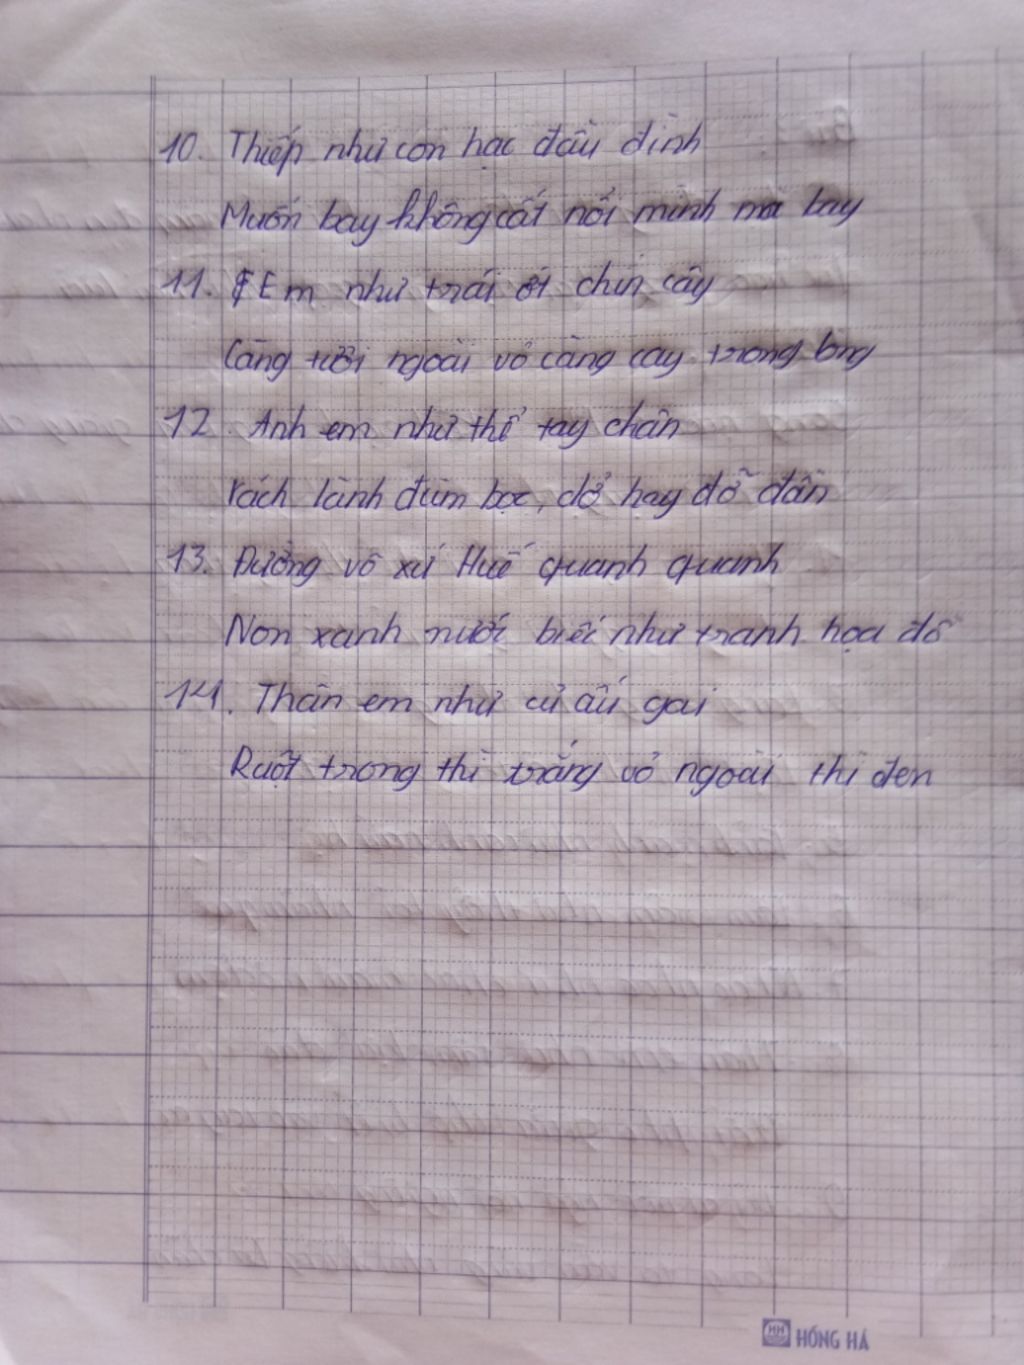 10. Thiếp như con hạc đầu đình
Muốn bay không cất nổi mình mà bay
11. Em như trái ớt chín cây
Càng tươi ngoài vỏ càng cay trong lòng
12. Anh em như thể tay chân
rách lành đùm bọc, dở hay đỡ đần
13. Đường vô xứ Huế quanh quanh
Non xanh nước biếc như tranh họa đồ
14. Thân em như củ ấu gai
Ruột trong thì trắng vỏ ngoài thì đen
HH HỒNG HÀ